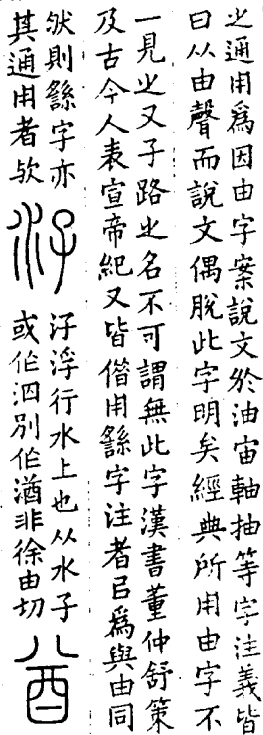 之通用爲因由字案說文於油宙軸抽等字注義皆
曰从由聲而說文偶脫此字明矣經典所用由字不
一見之又子路之名不可謂無此字漢書董仲舒策
及古今人表宣帝紀又皆借用繇字注者㠯爲與由同
然則繇字亦
其通用者欤
汓
汓浮行水上也从水子
或作泅別作湭非徐由切
酋